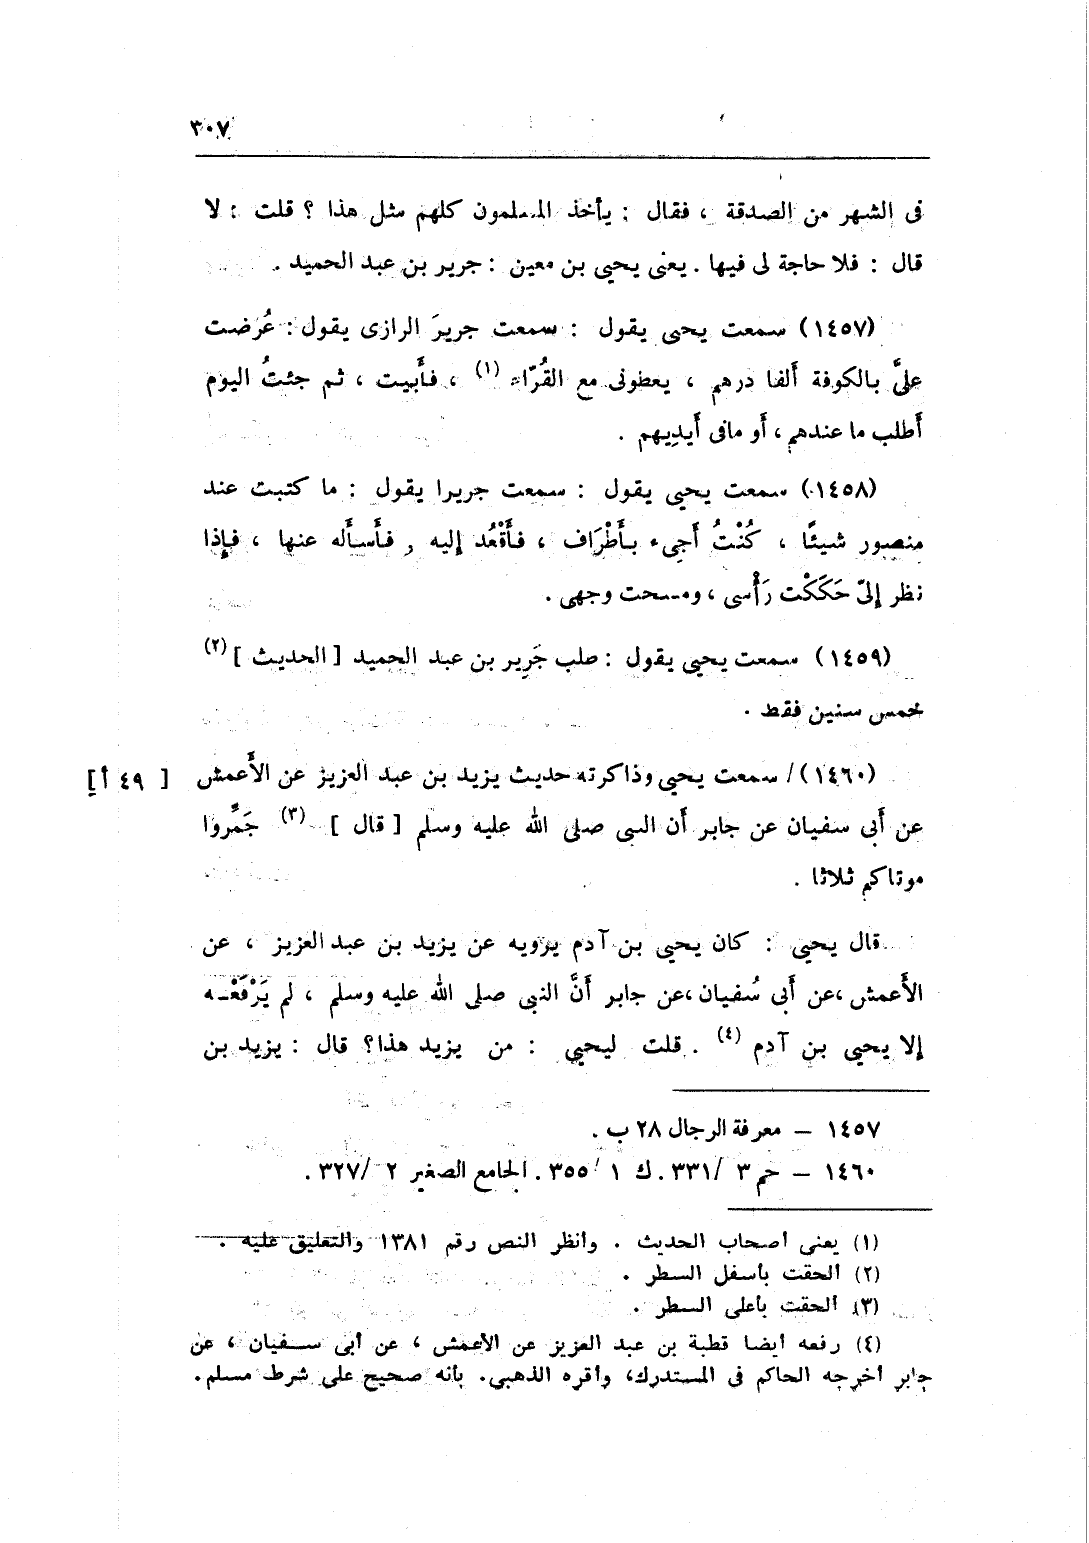 ٣٠٧
فى الشهر من الصدقة ، فقال : يأخذ المسلمون كلهم مثل هذا ؟ قلت : لا
قال : فلا حاجة لى فيها . يعنى يحيى بن معين : جرير بن عبد الحميد .
(١٤٥٧) سمعت يحيى يقول : سمعت جريرَ الرازى يقول : عُرضت
علىَّ بالكوفة ألفا درهم ، يعطونى مع القُرّاء (١) ، فأَبيت ، ثم جئتُ اليوم
أَطلب ما عندهم ، أَو مافى أَيدِيهم .
(١٤٥٨) سمعت يحيى يقول : سمعت جريرا يقول : ما كتبت عند
منصور شيئًا ، كُنْتُ أجىء بأَطْرَاف ، فأَقْعُد إليه , فأَسأَله عنها ، فإذا
نظر إلىّ حَكَكْت رَأْسى ، ومسحت وجهى .
(١٤٥٩) سمعت يحيى يقول : طلب جَرِير بن عبد الحميد [ الحديث ] (٢)
خمس سنين فقط .
(١٤٦٠) / سمعت يحيى وذاكرته حديث يزيد بن عبد العزيز عن الأَعمش [ ٤٩ أ ]
عن أَبى سفيان عن جابر أَن النبى صلى الله عليه وسلم [ قال ] (٣) جَمِّروا
موتاكم ثلاثا .
قال يحيى : كان يحيى بن آدم يرويه عن يزيد بن عبد العزيز ، عن
الأَعمش ،عن أَبى سُفيان ،عن جابر أَنَّ النبى صلى الله عليه وسلم ، لم يَرْفَعْه
إلا يحيى بن آدم (٤) . قلت ليحيى : من يزيد هذا؟ قال : يزيد بن
١٤٥٧ – معرفة الرجال ٢٨ ب .
١٤٦٠ – حم ٣ /٣٣١. ك ١ / ٣٥٥ . الجامع الصغير ٢ /٣٢٧ .
(١) يعنى أصحاب الحديث . وانظر النص رقم ١٣٨١ والتعليق عليه .
(٢) ألحقت بأسفل السطر .
(٣) ألحقت بأعلى السطر .
(٤) رفعه أيضا قطبة بن عبد العزيز عن الأعمش ، عن أبى سفيان ، عن
جابر أخرجه الحاكم فى المستدرك، وأقره الذهبى. بأنه صحيح على شرط مسلم.